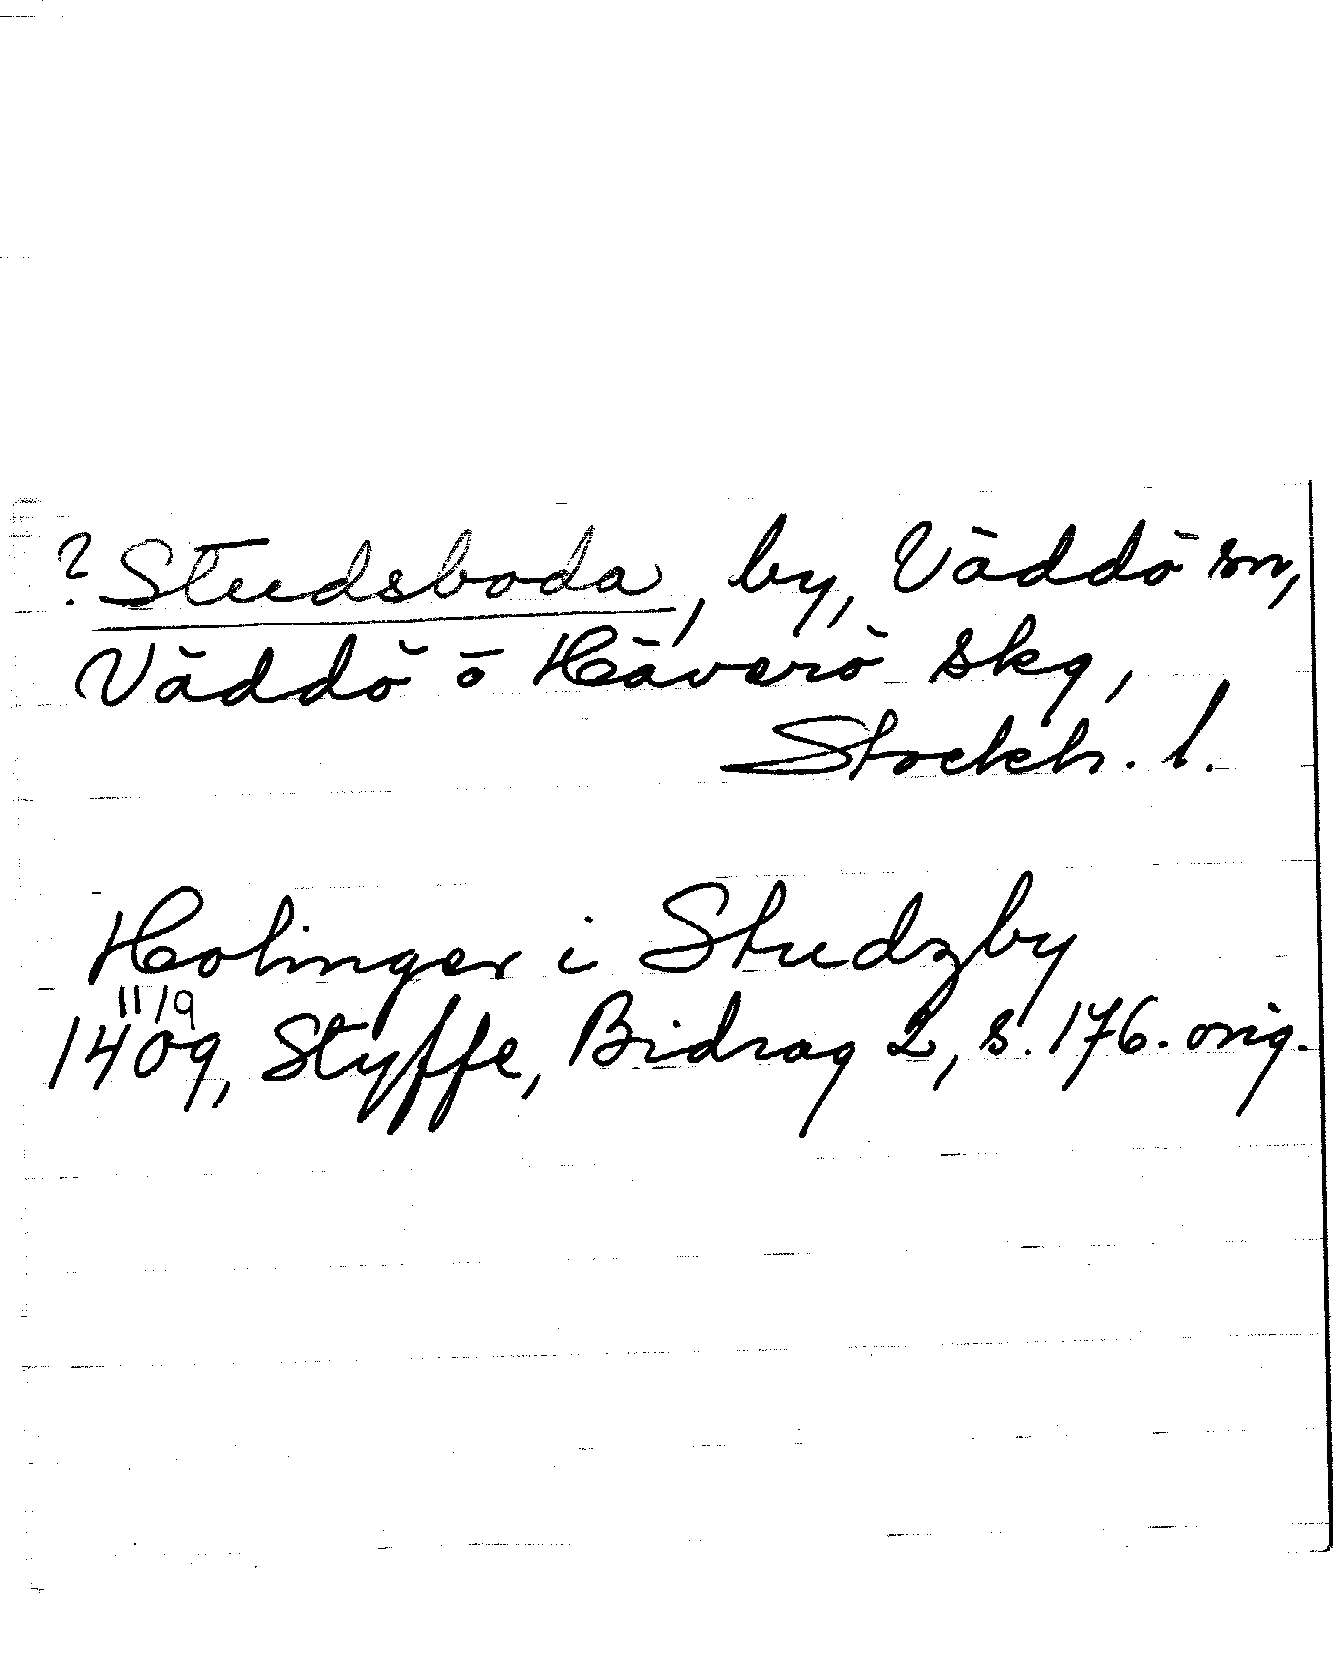 ? Studsboda, by, Väddö sn,
Väddö o Häverö skg,
Stockh. l.
Holinger i Studzby
11/9
1409, Styffe, Bidrag 2, s. 176. orig.